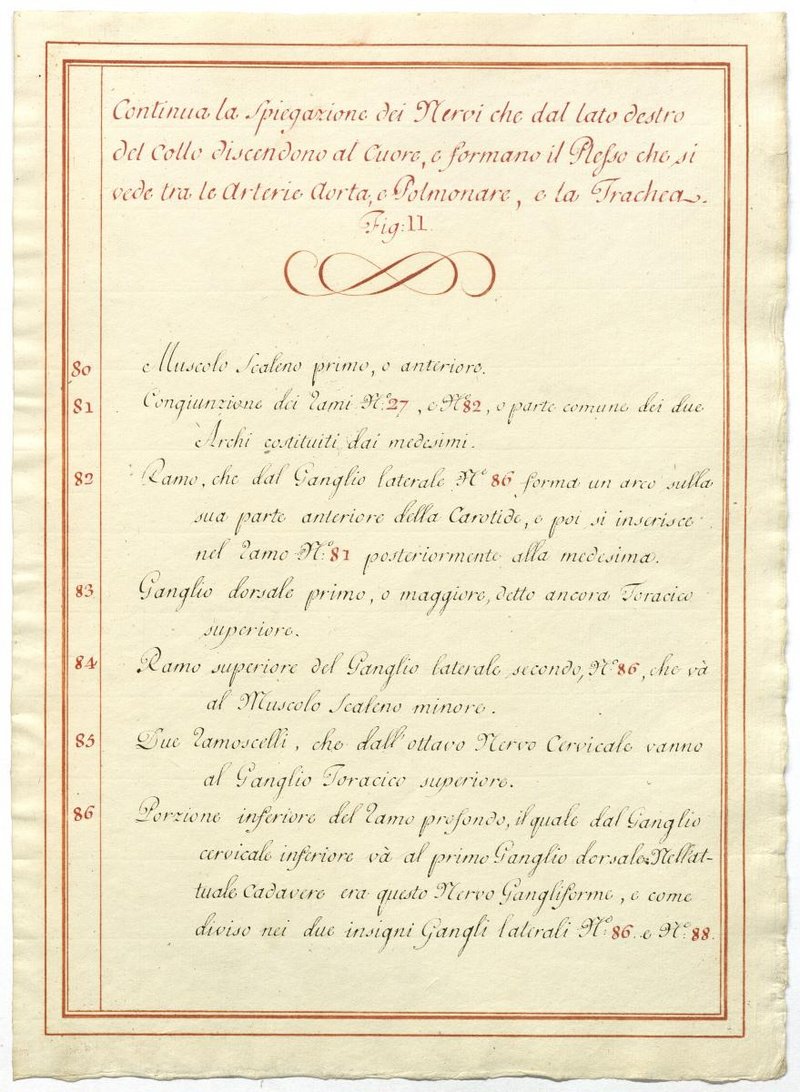 Continua la Spiegazione dei Nervi che dal lato destro
del Collo discendono al Cuore, e formano il Plesso che si
vede tra le Arterie Aorta, e Polmonare, e la Trachea.
Fig: 11
80 Muscolo Scaleno primo, o anteriore.
81 Congiunzione dei Rami N.º 27, e N.º 82, o parte comune dei due
Archi costituiti dai medesimi.
82 Ramo, che dal Ganglio laterale N.º 86 forma un arco sulla
sua parte anteriore della Carotide, e poi si inserisce
nel Ramo N.º 81 posteriormente alla medesima.
83 Ganglio dorsale primo, o maggiore, detto ancora Toracico
superiore.
84 Ramo superiore del Ganglio laterale secondo, N.º 86, che và
al Muscolo Scaleno minore.
85 Due Ramoscelli, che dall'ottavo Nervo Cervicale vanno
al Ganglio Toracico superiore.
86 Porzione inferiore del Ramo profondo, il quale dal Ganglio
cervicale inferiore và al primo Ganglio dorsale. Nell'at-
tuale Cadavere era questo Nervo Gangliforme, e come
diviso nei due insigni Gangli laterali N.º 86. e N.º 88.